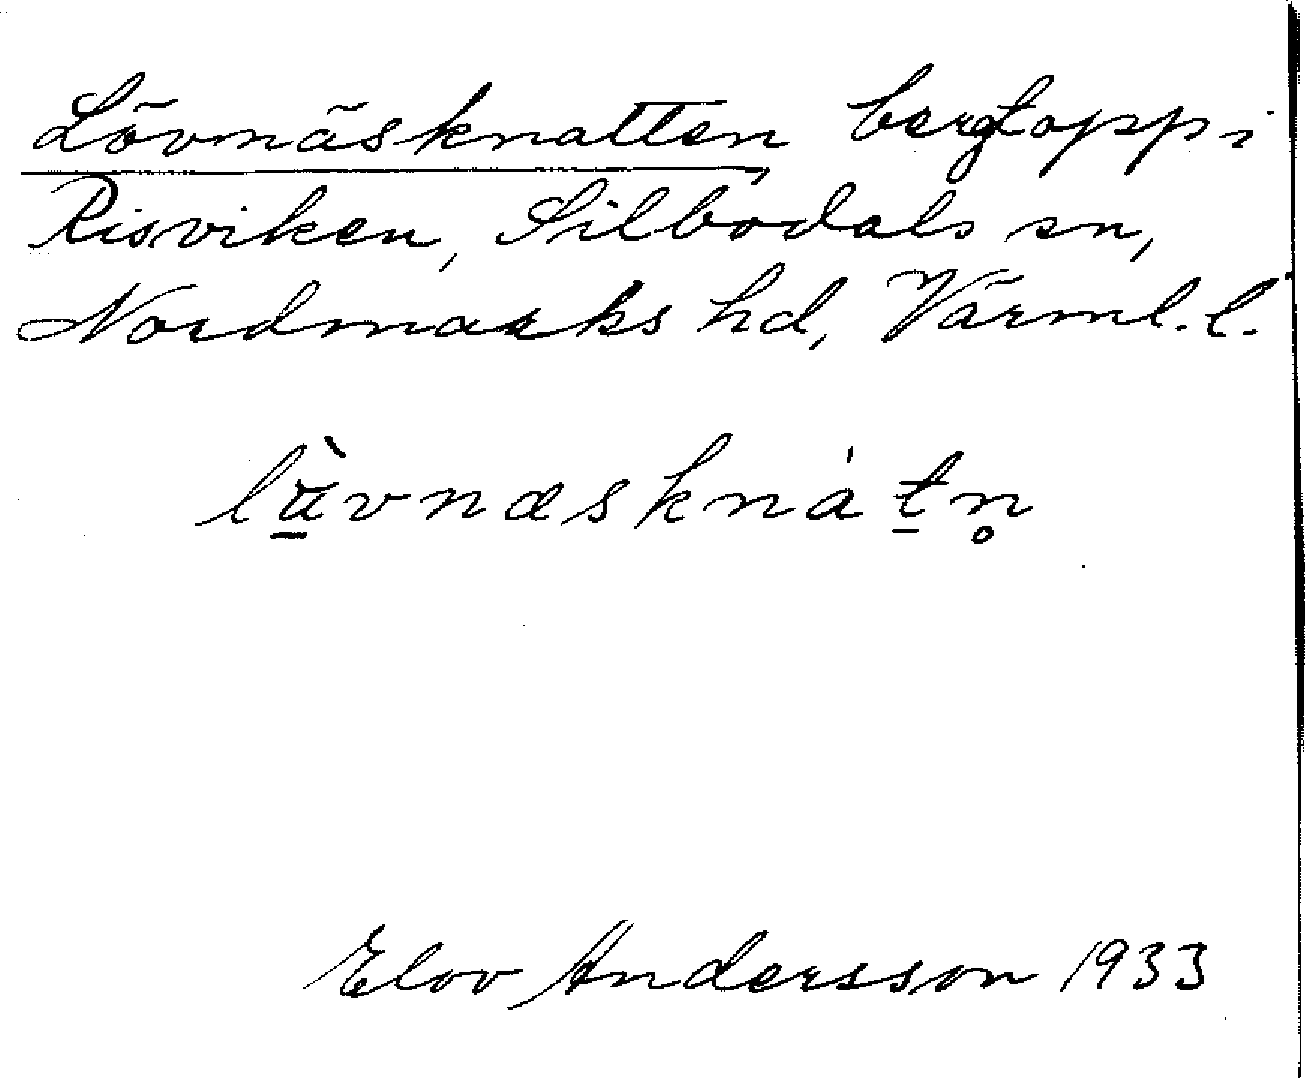 Lövnäsknatten, bergtopp i
Risviken, Silbodals sn,
Nordmarks hd, Värml. l.
lä̱̀vnæsknát̠n̥
Elov Andersson 1933